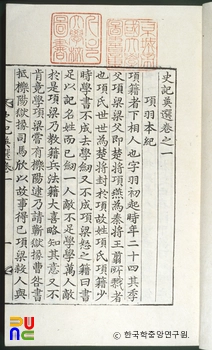 京城帝國大學圖書章
史記英選卷之一
項羽本紀
項籍者下相人也字羽初起時年二十四其季
父項梁梁父即楚將項燕爲秦將王翦所戮者
也項氏世世爲楚將封於項故姓項氏項籍少
時學書不成去學劍又不成項梁怒之籍曰書
足以記名姓而已劍一人敵不足學學萬人敵
於是項梁乃教籍兵法籍大喜略知其意又不
肯竟學項梁嘗有櫟陽逮乃請蘄獄掾曹咎書
抵櫟陽獄掾司馬欣以故事得已項梁殺人與
© 한국학중앙연구원.